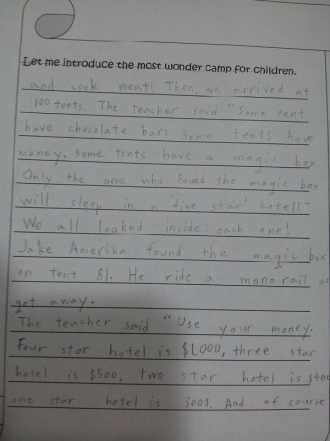 Let me introduce the most wonder camp for children.
and cook meat. Then, we arrived at
100 tents. The teacher said "Some tent
have chocolate bars. Some tents have
money. Some tents have a magic box.
Only the one who found the magic box
will sleep in a 'five star' hotel!"
We all looked inside each one!
Jake Amerika found the magic box
on tent 81. He ride a monorail
got away.
The teacher said "Use your money.
Four star hotel is $1,000, three star
hotel is $500, two star hotel is $400
one star hotel is And of course